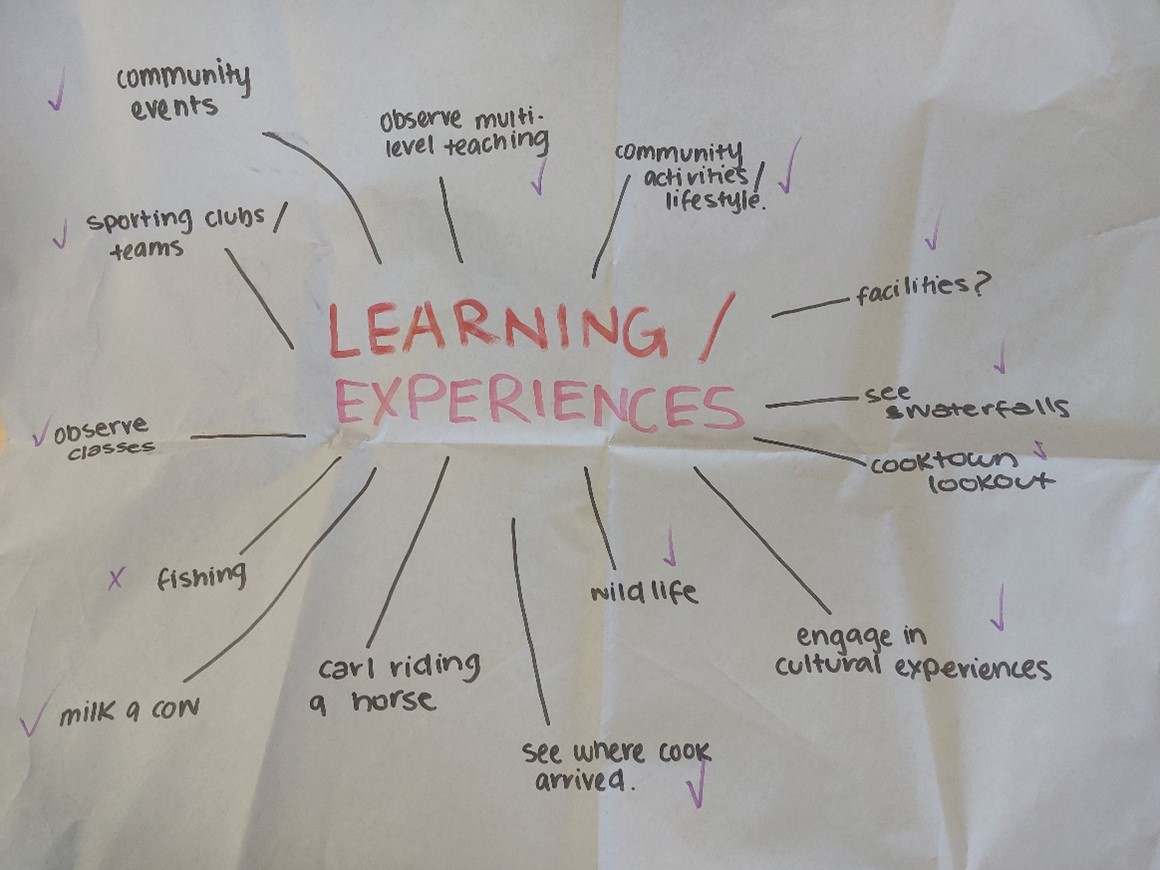 community
events
observe multi-
level teaching
community
activities/
lifestyle.
sporting clubs /
teams
facilities?
LEARNING /
EXPERIENCES
see
waterfalls
observe
classes
cooktown
lookout
fishing
wildlife
engage in
cultural experiences
carl riding
a horse
milk a cow
see where cook
arrived.